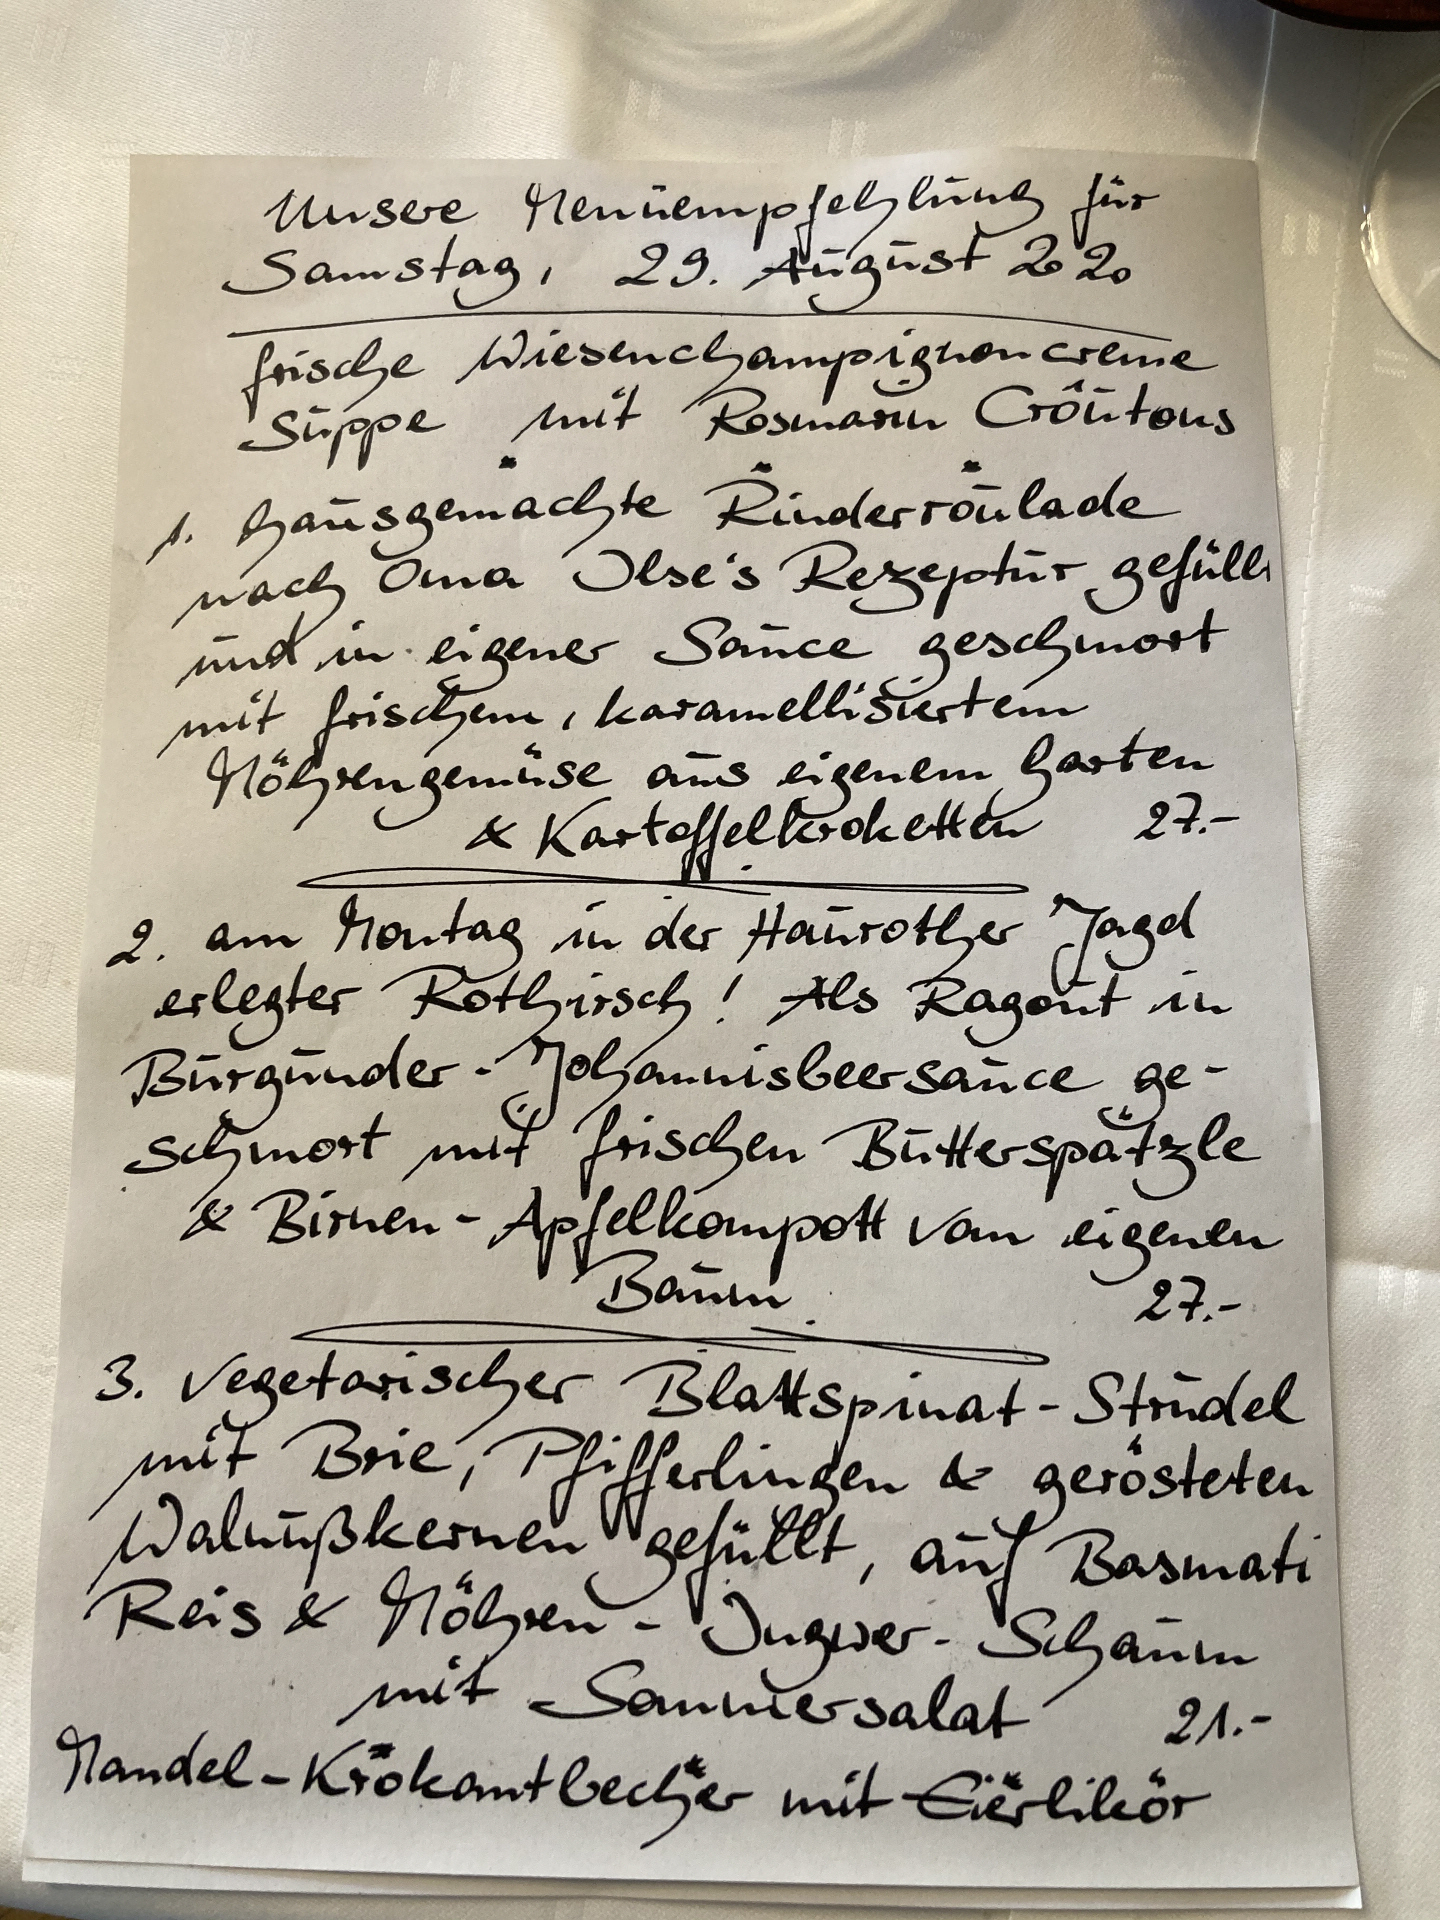 Unsere Menüempfehlung für
Samstag, 29. August 2020
frische Wiesenchampignoncreme
Suppe mit Rosmarin Croûtons
1. hausgemachte Rinderroulade
nach Oma Ilse's Rezeptur gefüllt
und in eigener Sauce geschmort
mit frischem, karamellisiertem
Möhrengemüse aus eigenem Garten
& Kartoffelkroketten 27.-
2. am Montag in der Haurother Jagd
erlegter Rothirsch! Als Ragout in
Burgunder-Johannisbeersauce ge-
schmort mit frischen Butterspätzle
& Birnen-Apfelkompott vom eigenen
Baum 27.-
3. Vegetarischer Blattspinat-Strudel
mit Brie, Pfifferlingen & gerösteten
Walnußkernen gefüllt, auf Basmati
Reis & Möhren-Ingwer-Schaum
mit Sommersalat 21.-
Mandel-Krokantbecher mit Eierlikör